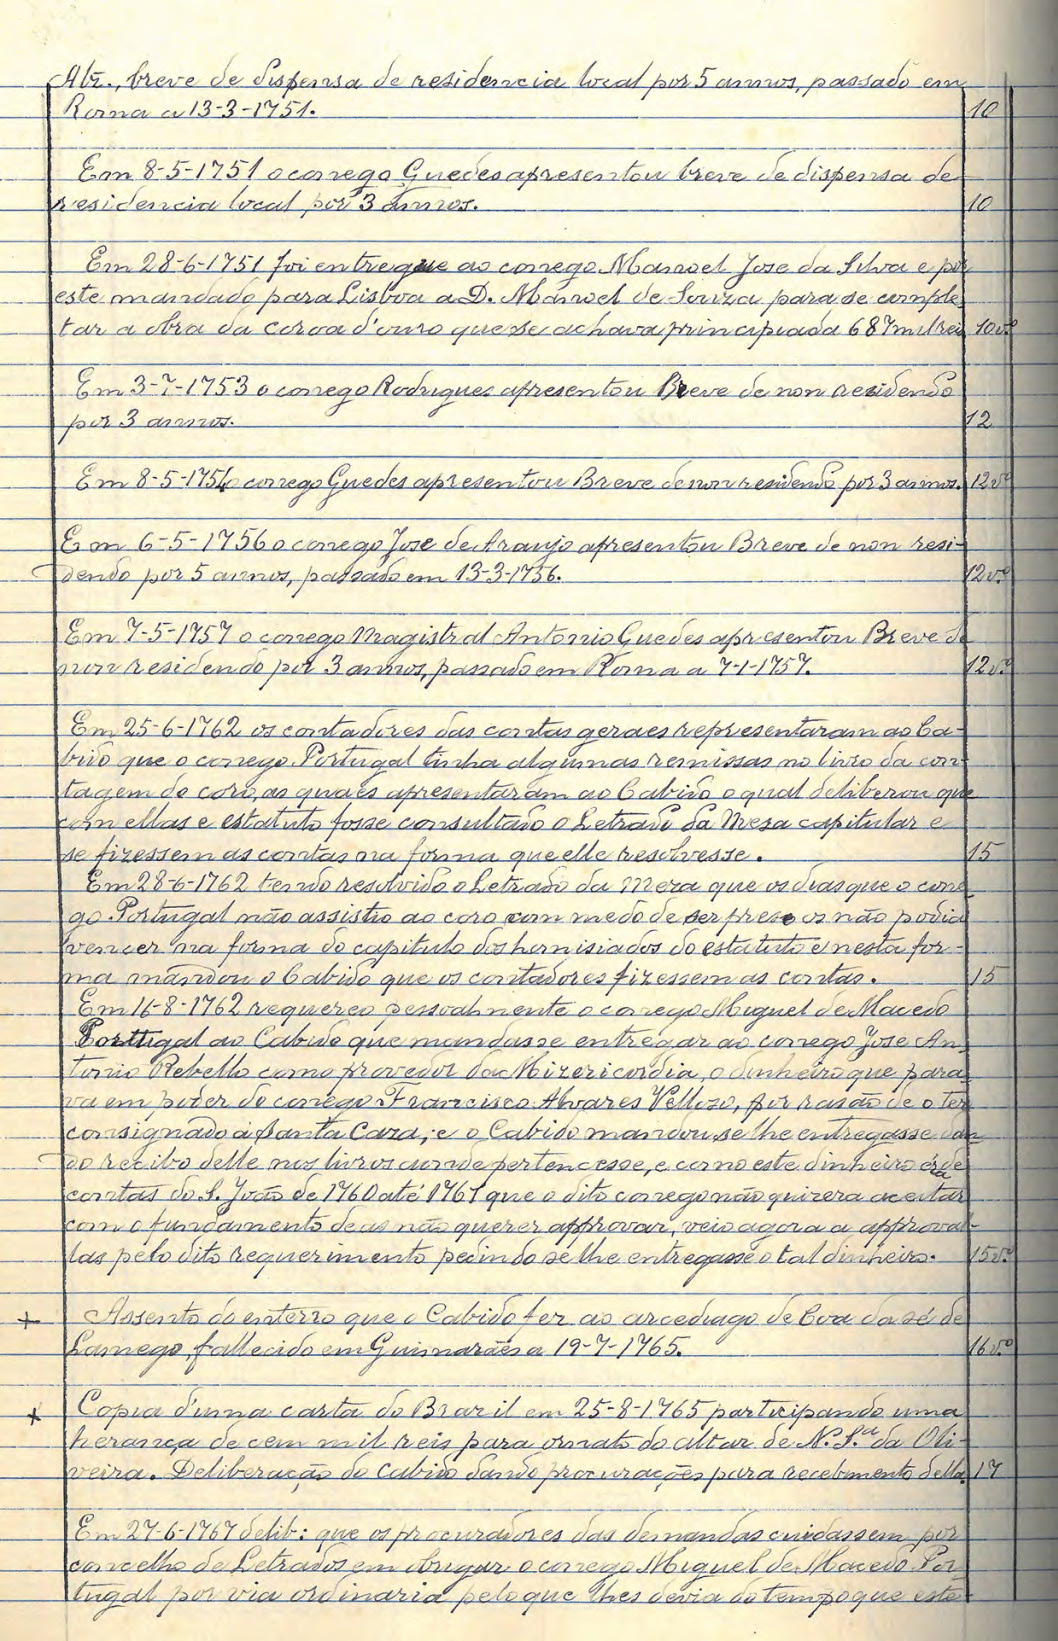 Abr., breve de dispensa de residencia local por 5 annos, passado em
Roma a 13-3-1751. 10
Em 8-5-1751 o conego Guedes apresentou breve de dispensa de
residencia local por 3 annos. 10
Em 28-6-1751 foi entregue ao conego Manoel Jose da Silva e por
este mandado para Lisboa a D. Manoel de Souza para se comple
tar a obra da coroa d'ouro que se achava principiada 687 mil reis 10v.º
Em 3-7-1753 o conego Rodrigues apresentou Breve de non residendo
por 3 annos. 12
Em 8-5-1754 o conego Guedes apresentou Breve de non residendo por 3 annos. 12v.º
Em 6-5-1756 o conego Jose de Araujo apresentou Breve de non resi-
dendo por 5 annos, passado em 13-3-1756. 12v.º
Em 7-5-1757 o conego Magistral Antonio Guedes apresentou Breve de
non residendo por 3 annos, passado em Roma a 7-1-1757. 12v.º
Em 25-6-1762 os contadores das contas geraes representaram ao Ca-
bido que o conego Portugal tinha algumas remissas no livro da con-
tagem do coro, as quaes apresentaram ao Cabido o qual deliberou que
com ellas e estatuto fosse consultado o Letrado da Meza capitular e
se fizessem as contas na forma que elle resolvesse. 15
Em 28-6-1762 tendo resolvido o Letrado da Meza que os dias que o cone
go Portugal não assistio ao coro com medo de ser preso os não podia
vencer na forma do capitulo dos homisiados do estatuto e nesta for-
ma mandou o Cabido que os contadores fizessem as contas. 15
Em 16-8-1762 requereo pessoalmente o conego Miguel de Macedo
Portugal ao Cabido que mandasse entregar ao conego Jose An-
tonio Rebello como provedor da Mizericordia, o dinheiro que para-
va em poder do conego Francisco Alvares Velloso, por rasão de o ter
consignado á Santa Caza, e o Cabido mandou se lhe entregasse dan-
do recibo delle nos livros aonde pertencesse, e como este dinheiro era de
contas do S. João de 1760 até 1761 que o dito conego não quizera aceitar
com o fundamento de as não querer approvar, veio agora a approval-
las pelo dito requerimento pedindo se lhe entregasse o tal dinheiro. 15v.º
+ Assento do enterro que o Cabido fez ao arcediago de Coa da sé de
Lamego, fallecido em Guimarães a 19-7-1765. 16v.º
+ Copia d'uma carta do Brazil em 25-8-1765 participando uma
herança de cem mil reis para ornato do altar de N. S.ª da Oli-
veira. Deliberação do Cabido dando procurações para recebimento della 17
Em 27-6-1767 delib: que os procuradores das demandas cuidassem por
concelho de Letrados em obrigar o conego Miguel de Macedo Por-
tugal por via ordinaria pelo que lhes devia do tempo que este